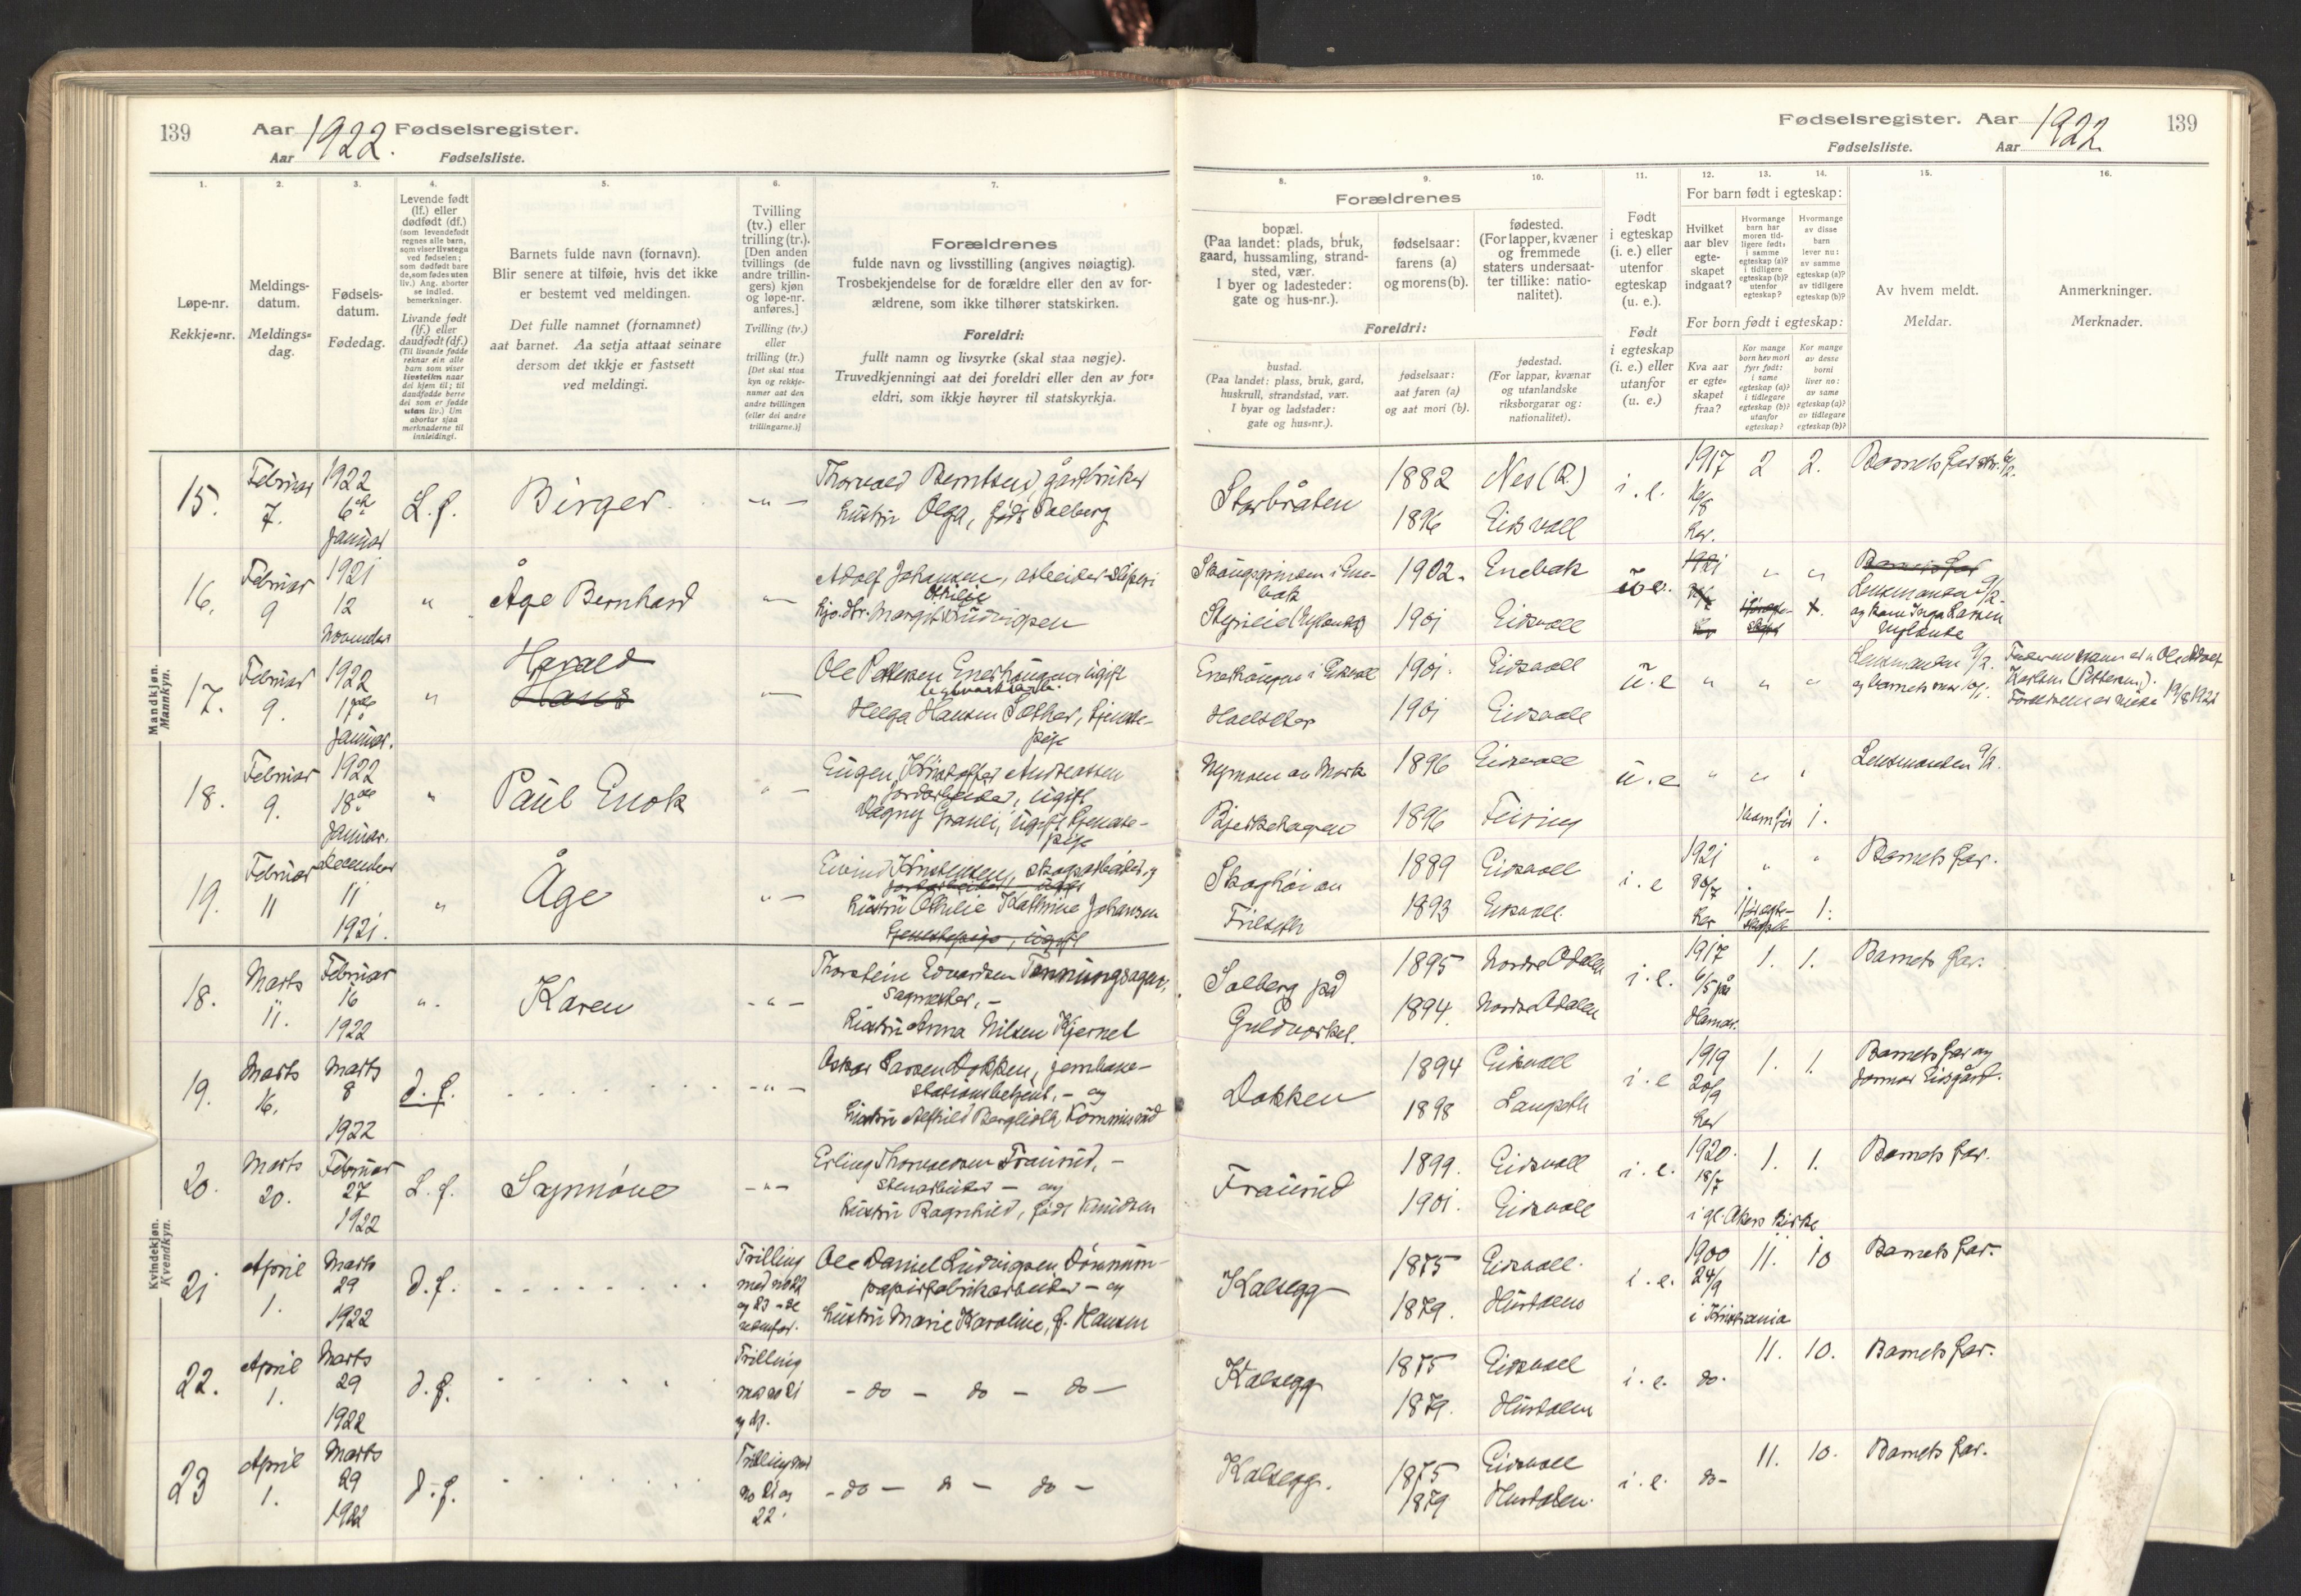 139
Aar 1922. Fødselsregister.
Aar
Fødselsliste.
1.
2.
3.
4.
5.
6.
7.
Løpe-nr.
Rekkje=nr.
Meldings-
datum.
Meldings=
dag.
Fødsels-
datum.
Fødedag.
Levende født
(lf.) eller
dødfødt (df.)
(som levendefødt
regnes alle barn,
som viser livstegn
ved fødselen;
som dødfødt bare
de, som fødes uten
liv.) Ang. aborter
se indled.
bemerkninger.
Livande født
(lf.) eller
daudfødt (df.)
(Til livande fødde
reknar ein alle
barn som viser
livsteikn naar
dei kjem til; til
daudfødde berre
dei som er fødde
utan liv.) Um
abortar sjaa
merknaderne til
innleidingi.
Barnets fulde navn (fornavn).
Blir senere at tilføie, hvis det ikke
er bestemt ved meldingen.
Det fulle namnet (fornamnet)
aat barnet. Aa setja attaat seinare
dersom det ikkje er fastsett
ved meldingi.
Tvilling
(tv.) eller
trilling (tr.).
[Den anden
tvillings (de
andre trillin-
gers) kjøn
og løpe-nr.
anføres.]
Tvilling (tv.)
eller
trilling (tr.)
[Det skal staa
kyn og rekkje-
numer aat den
andre tvillingen
(eller dei andre
trillingarne.)]
Forældrenes
fulde navn og livsstilling (angives nøiagtig).
Trosbekjendelse for de forældre eller den av for-
ældrene, som ikke tilhører statskirken.
Foreldri:
fullt namn og livsyrke (skal staa nøgje).
Truvedkjenningi aat dei foreldri eller den av for=
eldri, som ikkje høyrer til statskyrkja.
Mandkjøn.
Mannkyn.
15.
Februar
7.
1922
6te
Januar
L.f.
Birger
Thorvald Berntsen, gårdbruker
hustru Olga, født Dalberg
16.
Februar
9
1921
12
November
Åge Bernhard
Adolf Johansen, arbeider
Othilie
Margit Ludvigsen
17.
Februar
9.
1922
17de
Januar.
Harald
Hans
Ole Pettersen Eneshaugen ugift
Helga Hansen Sæther, tjeneste-
pige
18.
Februar
9.
1922
18de
Januar.
Paul Enok
Eugen Kristoffer Andreassen
jordarbeider, ugift
Dagny Granli, ugift tjeneste-
pige
19.
Februar
11
December
11
1921.
Åge
Eivind Kristensen, skogsarbeider, og
hustru Othilie Kathrine Johansen
tjenestepige, ugift
Kvindekjøn.
Kvendkyn.
18.
Marts
11.
Februar
16
1922
Karen
Thorstein Edvardsen
sagmester, -
hustru Anna Nilsen Kjernet
19.
Marts
16.
Marts
8
1922
d.f.
Oskar Larsen Dokken, jernbane-
stationsbetjent, - og
20.
Marts
20.
Februar
27
1922
L.f.
Synnøve
Erling Thorvaldsen Fraurud, -
stenarbeider - og
hustru Ragnhild, født Knudsen
21
April
1.
Marts
29
1922
d.f.
Trilling
med no 22
og 23
Ole Daniel Ludvigsen Dønnum-
papirfabrikarbeider - og
hustru Marie Karoline, f. Hansen
22.
April
1.
Marts
29
1922
d.f.
Trilling
med no 21
- do - do - do -
23
April
1.
Marts
29
1922
d.f.
Trilling med
no 21 og
22.
- do - do - do -
Fødselsregister. Aar 1922 139
Fødselsliste. Aar
8.
9.
10.
11.
12.
13.
14.
15.
16.
Forældrenes
bopæl.
(Paa landet: plads, bruk,
gaard, hussamling, strand-
sted, vær.
I byer og ladesteder:
gate og hus-nr.).
fødselsaar:
farens (a)
og morens (b).
fødested.
(For lapper, kvæner
og fremmede
staters undersaat-
ter tillike: natio-
nalitet).
Foreldri:
bustad.
(Paa landet: plass, bruk, gard,
huskrull, strandstad, vær.
I byar og ladstader:
gate og hus=nr.).
fødselsaar:
aat faren (a)
og aat mori (b).
fødestad.
(For lappar, kvænar
og utanlandske
riksborgarar og:
nationalitet).
Født
i egteskap
(i. e.) eller
utenfor
egteskap
(u. e.).
Født
i egteskap
(i. e.) eller
utanfor
(u. e.)
For barn født i egteskap:
Hvilket
aar blev
egte-
skapet
indgaat?
Hvormange
barn har
moren tid-
ligere født:
i samme
egteskap (a)?
i tidligere
egteskap (b)?
utenfor
egteskap?
Hvormange
av disse
barn
lever nu:
av samme
egteskap (a)?
av tidligere
egteskap (b)?
For born født i egteskap:
Kva aar
er egte=
skapet
fraa?
Kor mange
born hev mori
fyrr født:
i same
egteskap (a)?
i tidlegare
egteskap (b)?
utanfor
egteskap?
Kor mange
av desse
borni
liver no:
av same
egteskap (a)?
av tidlegare
egteskap (b)?
Av hvem meldt.
Meldar.
Anmerkninger.
Merknader.
Storbråten
1882
1896
Nes (R.)
Eidsvoll
i. e.
1917
her.
2
2.
Barnets far
1902.
1901
Enebak
Eidsvoll
1921
Barnets far
Lensmanden 9/2.
1901.
1901
Eidsvoll
Eidsvoll
u. e
Lensmanden 9/2.
19/8 1922
1896
1896
Eidsvoll
Feiring
u. e
1.
Lensmanden 9/2.
Frilseth
1889
1893
Eidsvoll
Eidsvoll.
i. e
1921
her
1.
Barnets far.
Solberg på
Guldverket.
1895
1894.
Nordre Odalen
Nordre Odalen
i. e.
1917
6/5 på
Hamar.
1.
1.
Barnets far.
Dokken
1894
1898
Eidsvoll
i. e
1919
20/9
her
1.
1.
Barnets far og
Fraurud
1899.
1901.
Eidsvoll
Eidsvoll
i. e.
1920.
18/7
i gl. Akers kirke
1.
1.
Barnets far.
Kalsegg
1875
1879.
Eidsvoll.
Hurdalen
i. e.
1900
24/9
i Kristiania
11.
10
Barnets far.
Kalsegg
1875
1879.
Eidsvoll
Hurdalen
i. e.
do.
11.
10.
Barnets far.
Kalsegg.
1875
1879
Eidsvoll
Hurdalen.
i. e.
do-
11.
10.
Barnets far.